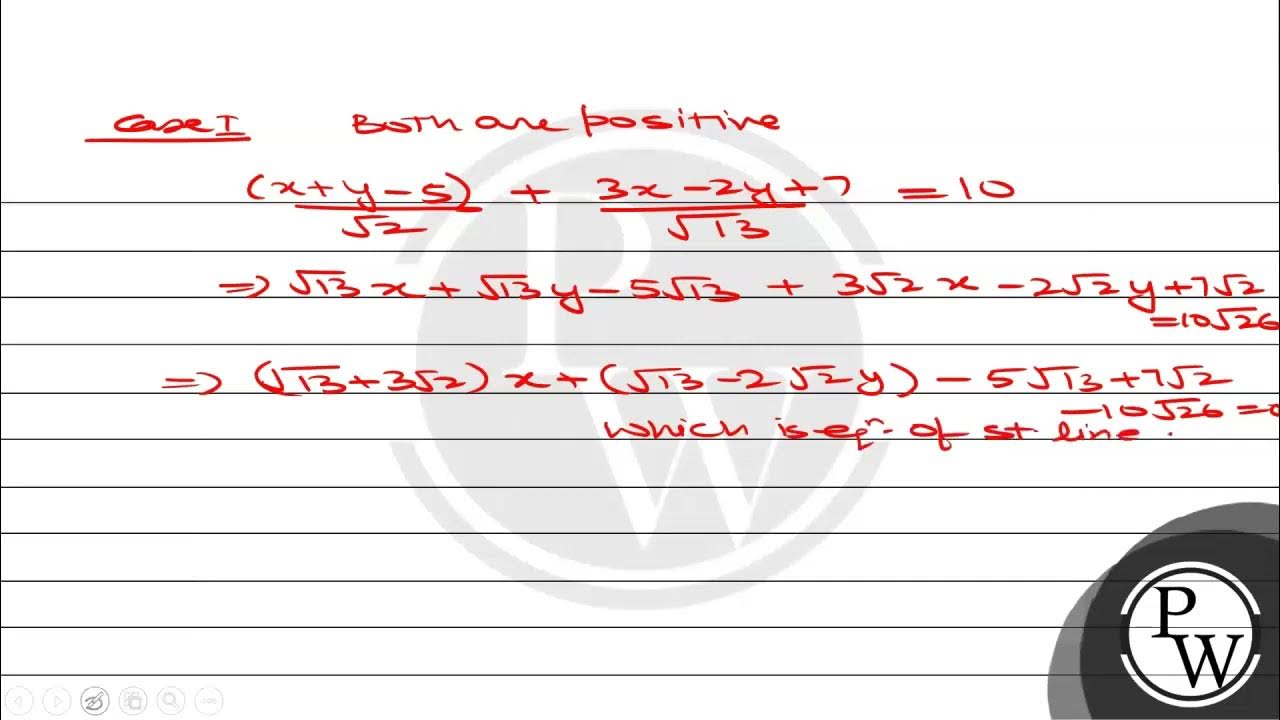 Case I Both are positive
(x+y-5)/√2 + 3x-2y+7/√13 = 10
⇒ √13 x + √13 y - 5√13 + 3√2 x - 2√2 y + 7√2
= 10√26
⇒ (√13+3√2) x + (√13 - 2√2 y) - 5√13 + 7√2
- 10√26 = 0
which is eqⁿ. of st. line.
PW
PW